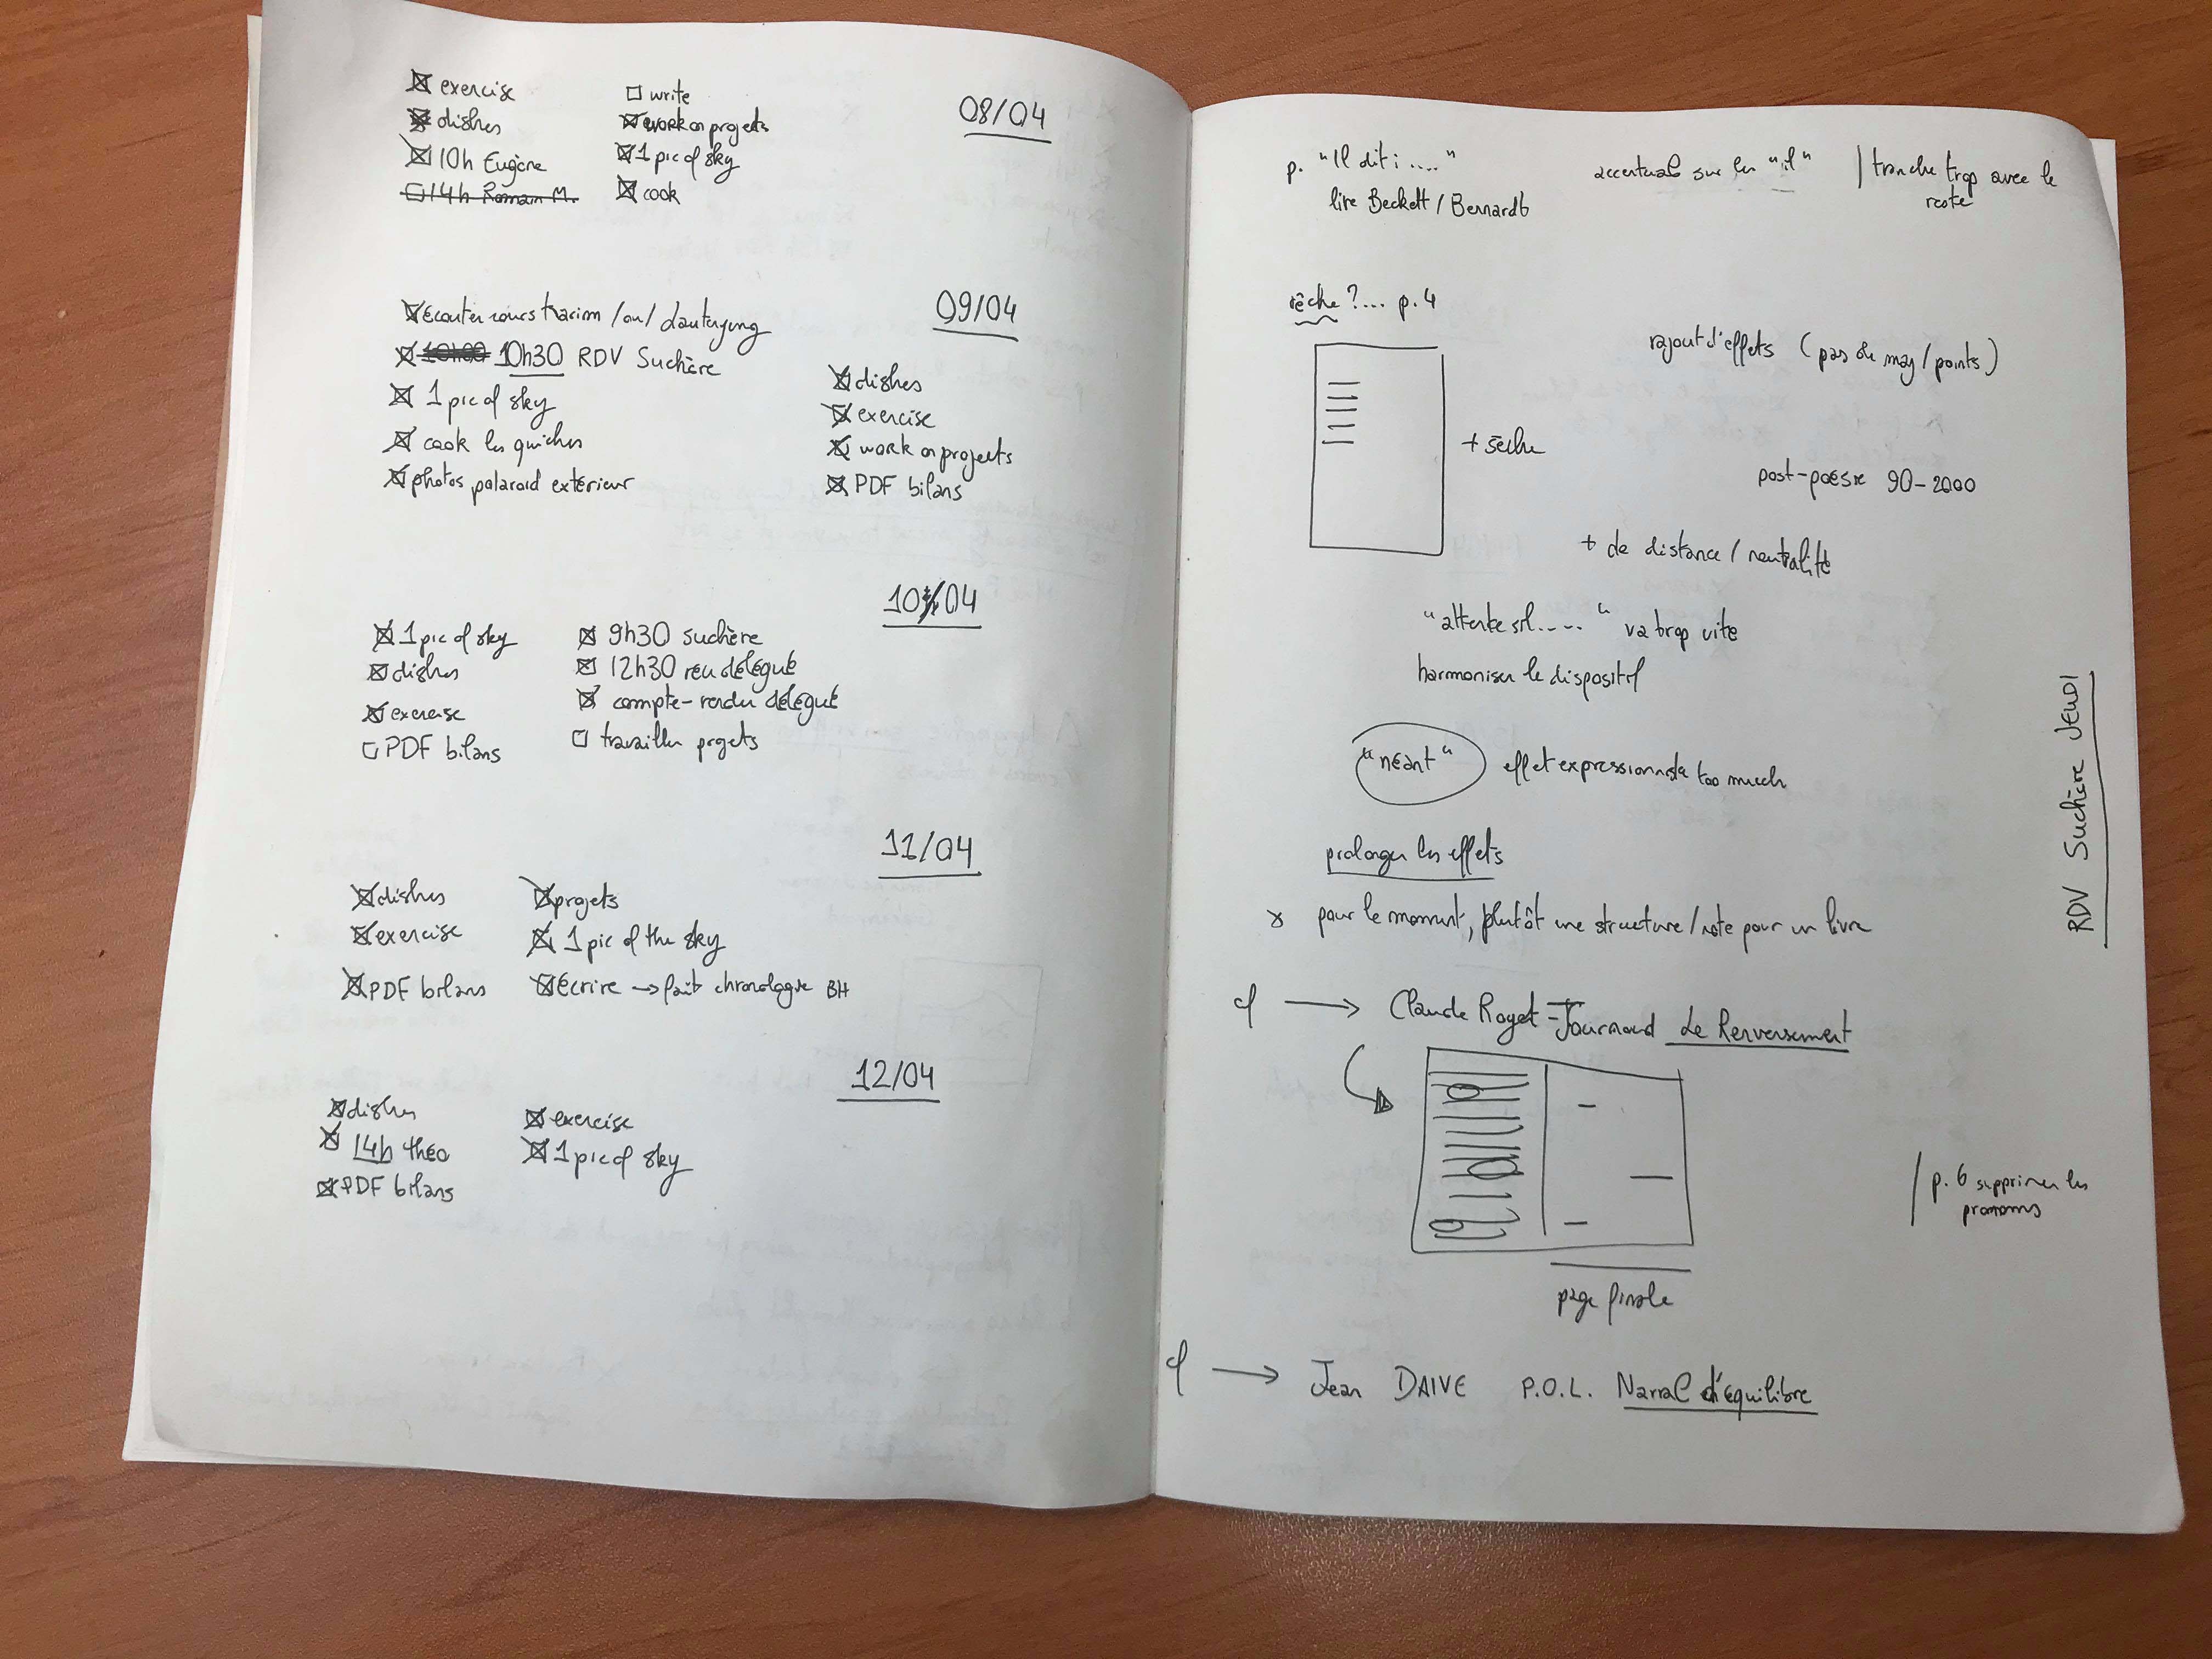 08/04
exercise
dishes
10h Eugène
14h Romain M.
write
work on projects
1 pic of sky
cook
09/04
écouter cours /ou/
10h30 RDV Suchère
1 pic of sky
cook les quiches
photos polaroid extérieur
dishes
exercise
work on projects
PDF bilans
10/04
1 pic of sky
dishes
exercise
PDF bilans
9h30 suchère
12h30 réu délégué
compte-rendu délégué
travailler projets
11/04
dishes
exercise
PDF bilans
projets
1 pic of the sky
écrire → fait chronologue BH
12/04
dishes
14h théo
PDF bilans
exercise
1 pic of sky
p. "Il dit : ...."
lire Beckett / Bernardt
sur les "il"
/ tranche trop avec le
reste
rêche ?... p. 4
rajout d'effets (pas de maj / points)
+ sèche
post-poésie 90-2000
+ de distance / neutralité
"attente sol....." va trop vite
harmoniser le dispositif
"néant" effet expressionniste too much
prolonger les effets
pour le moment, plutôt une structure / note pour un livre
cf → Claude Royet-Journoud Le Renversement
page finale
/ p. 6 supprimer les
pronoms
cf → Jean DAIVE P.O.L. Narra d'équilibre
RDV Suchère JEUDI